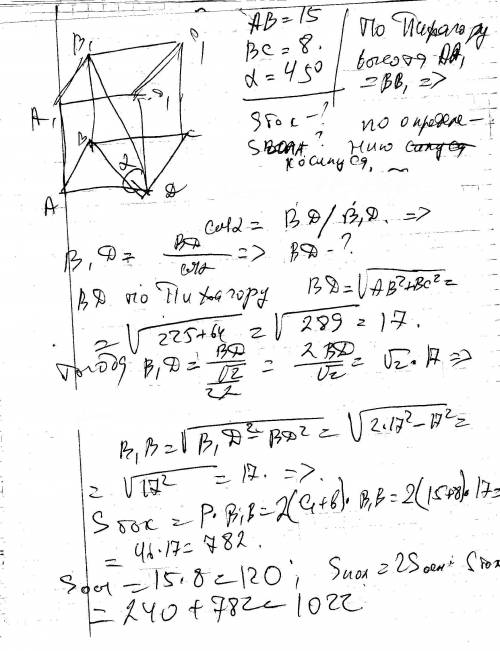 AB = 15
BC = 8.
α = 45°
Sбок - ?
По Пифагору
высота AA₁
= BB₁ =>
по определе-
нию
косинуса
B₁
A₁
B
C
A
D
2
cos α = BD / B₁D. =>
B₁D = BD / cos α => BD - ?
BD по Пифагору BD = √AB² + BC² =
= √225 + 64 = √289 = 17.
тогда B₁D = BD / √2/2 = 2BD / √2 = √2 · 17 =>
B₁B = √B₁D² - BD² = √2·17² - 17² =
= √17² = 17. =>.
Sбок = P · B₁B = 2(a+b) · B₁B = 2(15+8) · 17 =
= 46 · 17 = 782.
Sосн = 15 · 8 = 120; Sпол = 2Sосн + Sбок
= 240 + 782 = 1022